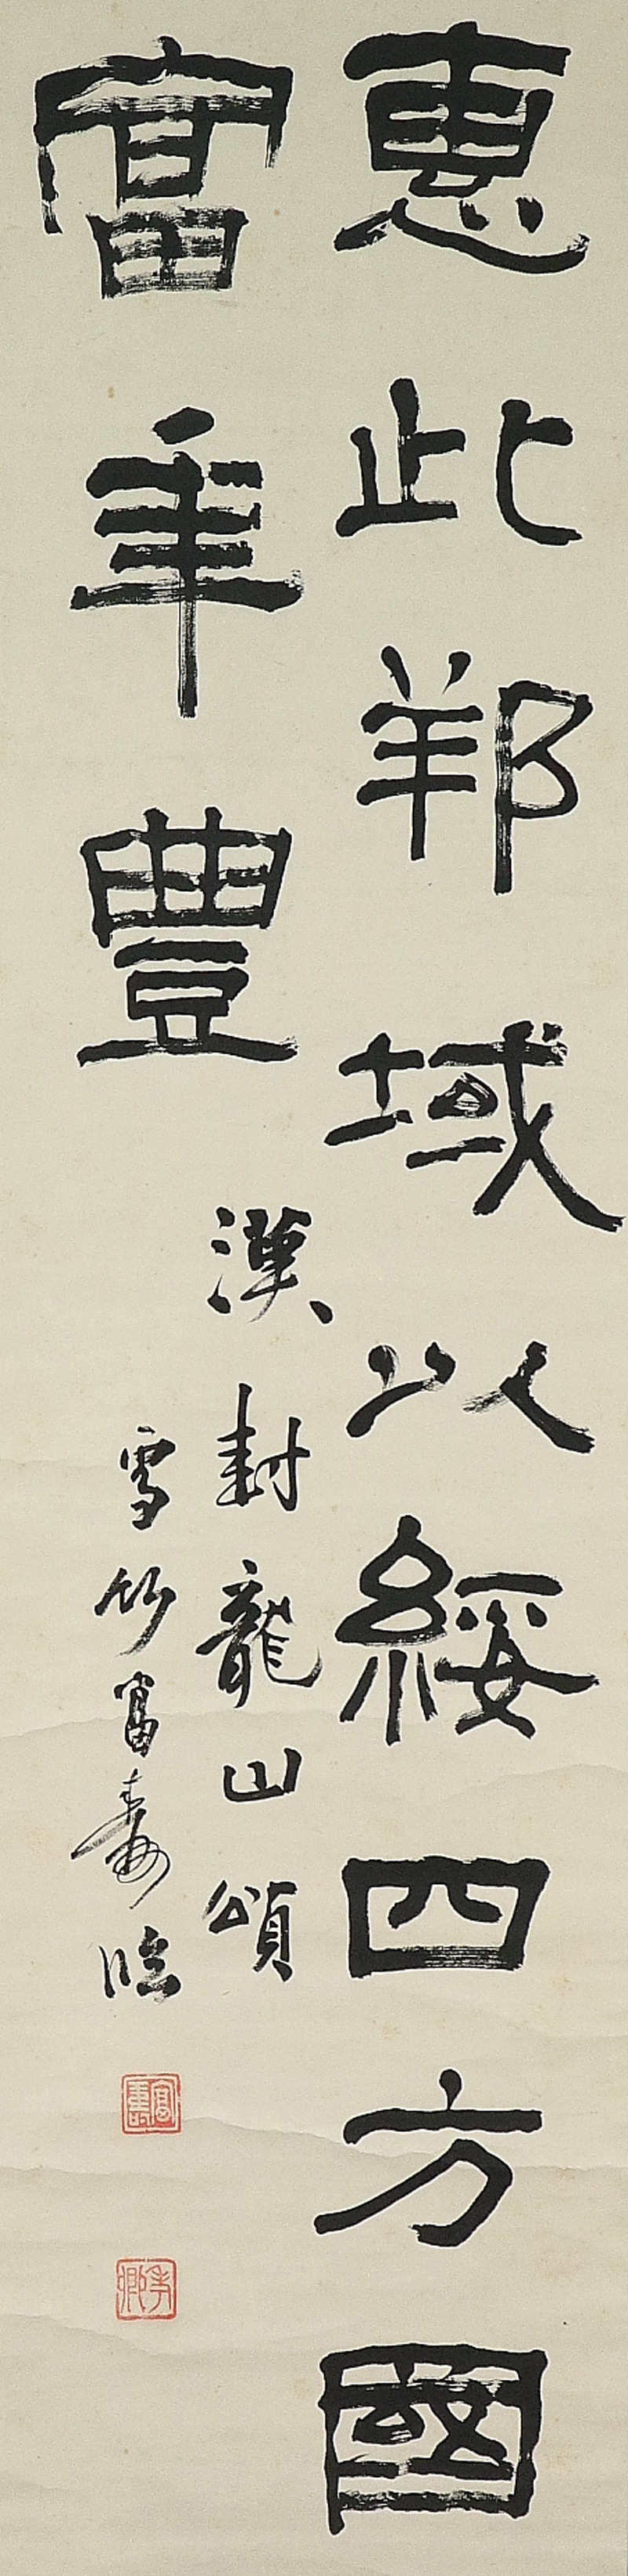 惠此邦域以綏四方國
富年豐
漢封龍山頌
雪竹富壽臨
富壽